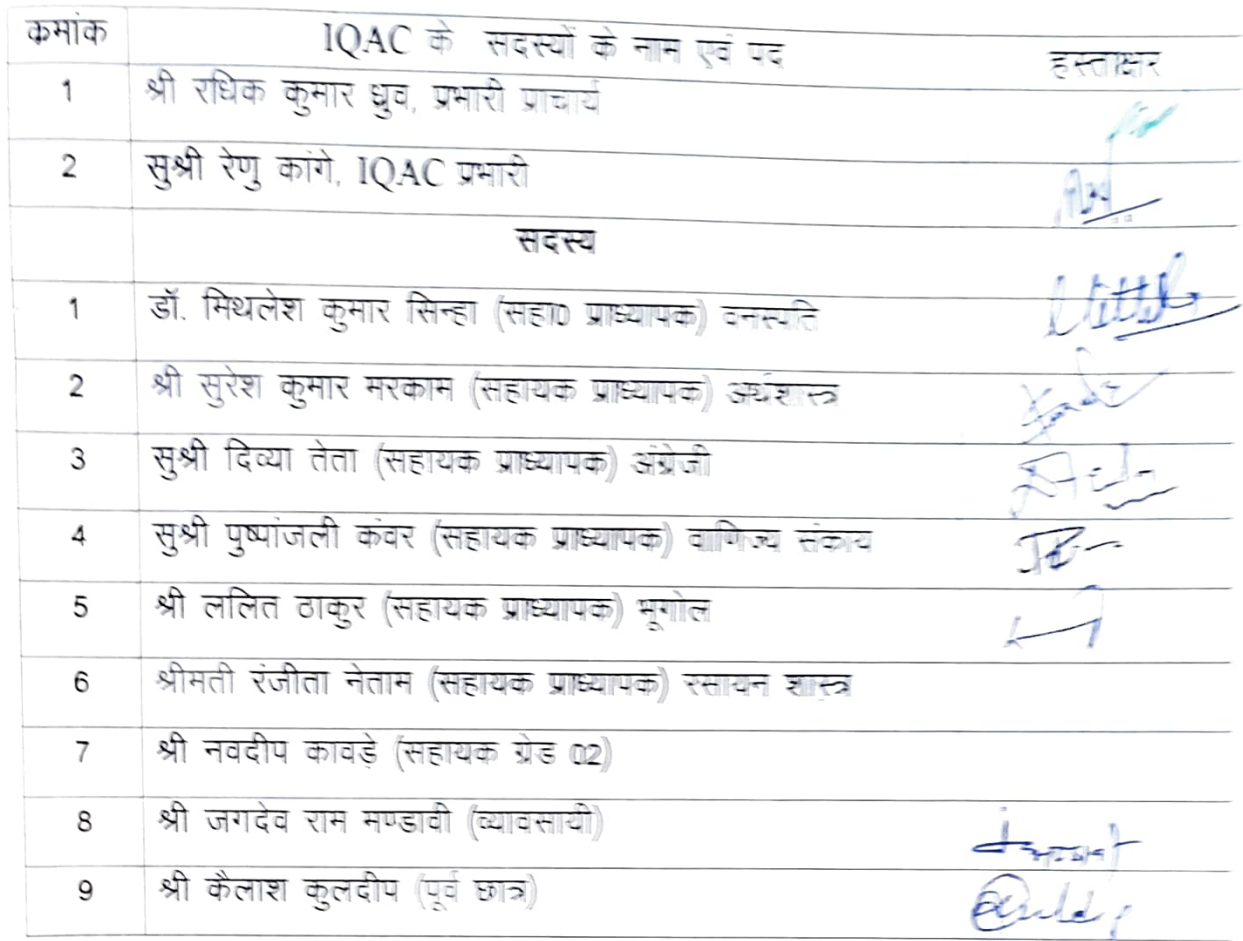 कमांक IQAC के सदस्यों के नाम एवं पद हस्ताक्षर
1 श्री रधिक कुमार ध्रुव, प्रभारी प्राचार्य
2 सुश्री रेणु कांगे, IQAC प्रभारी
सदस्य
1 डॉ. मिथलेश कुमार सिन्हा (सहा0 प्राध्यापक) वनस्पति
2 श्री सुरेश कुमार मरकाम (सहायक प्राध्यापक) अर्थशास्त्र
3 सुश्री दिव्या तेता (सहायक प्राध्यापक) अंग्रेजी
4 सुश्री पुष्पांजली कंवर (सहायक प्राध्यापक) वाणिज्य संकाय
5 श्री ललित ठाकुर (सहायक प्राध्यापक) भूगोल
6 श्रीमती रंजीता नेताम (सहायक प्राध्यापक) रसायन शास्त्र
7 श्री नवदीप कावड़े (सहायक ग्रेड 02)
8 श्री जगदेव राम मण्डावी (व्यावसायी)
9 श्री कैलाश कुलदीप (पूर्व छात्र)